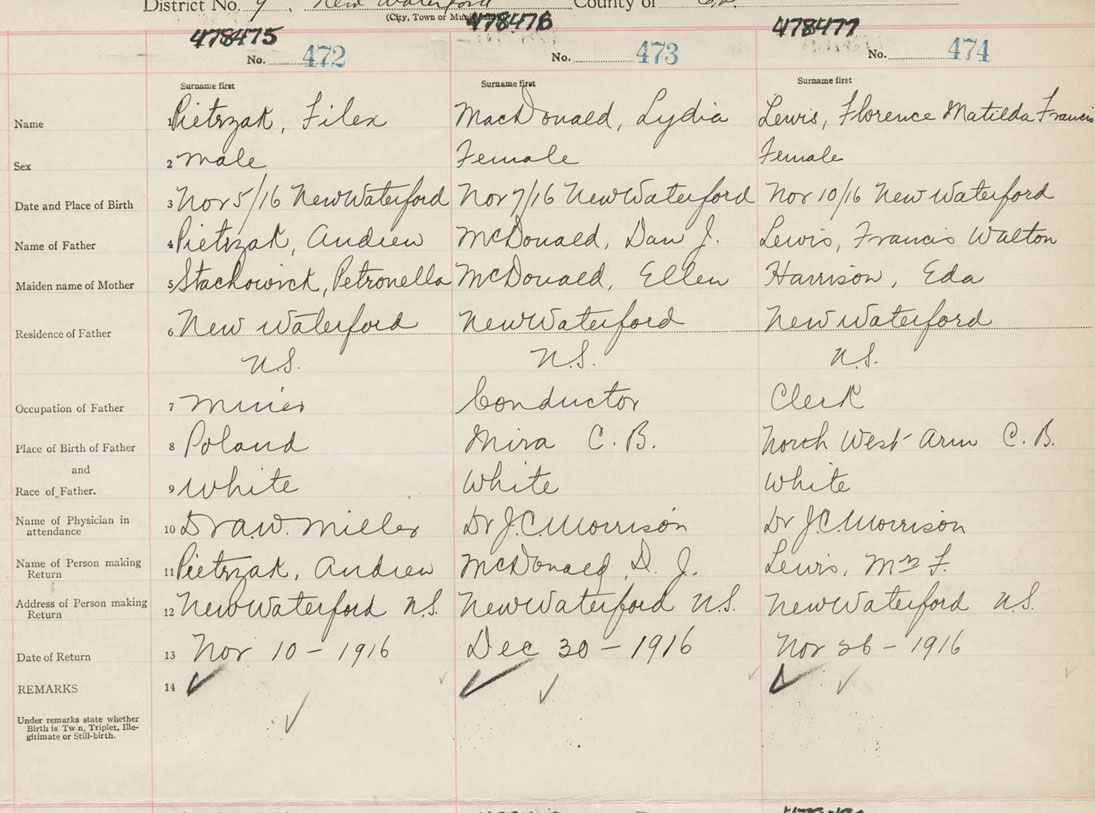 District No. 9. New Waterford County of C.B.
(City, Town or Municipality)
478475 478476 478477
No. 472 No. 473 No. 474
Surname first Surname first Surname first
Name 1 Pietrzak, Filex MacDonald, Lydia Lewis, Florence Matilda Francis
Sex 2 male Female Female
Date and Place of Birth 3 Nov 5/16 New Waterford Nov 7/16 New Waterford Nov 10/16 New Waterford
Name of Father 4 Pietrzak, Andrew McDonald, Dan J. Lewis, Francis Walton
Maiden name of Mother 5 Stachowick, Petronella McDonald, Ellen Harrison, Eda
Residence of Father 6 New Waterford New Waterford New Waterford
N.S. N.S. N.S.
Occupation of Father 7 miner Conductor Clerk
Place of Birth of Father 8 Poland Mira C. B. North West Arm C. B.
and
Race of Father. 9 White White White
Name of Physician in attendance 10 Dr A W. Miller Dr J.C. Morrison Dr J.C. Morrison
Name of Person making Return 11 Pietrzak, Andrew McDonald, D. J. Lewis, Mrs F.
Address of Person making Return 12 New Waterford N.S. New Waterford N.S. New Waterford N.S.
Date of Return 13 Nov 10 – 1916 Dec 30 – 1916 Nov 26 – 1916
REMARKS 14
Under remarks state whether
Birth is Twin, Triplet, Ille-
gitimate or Still-birth.